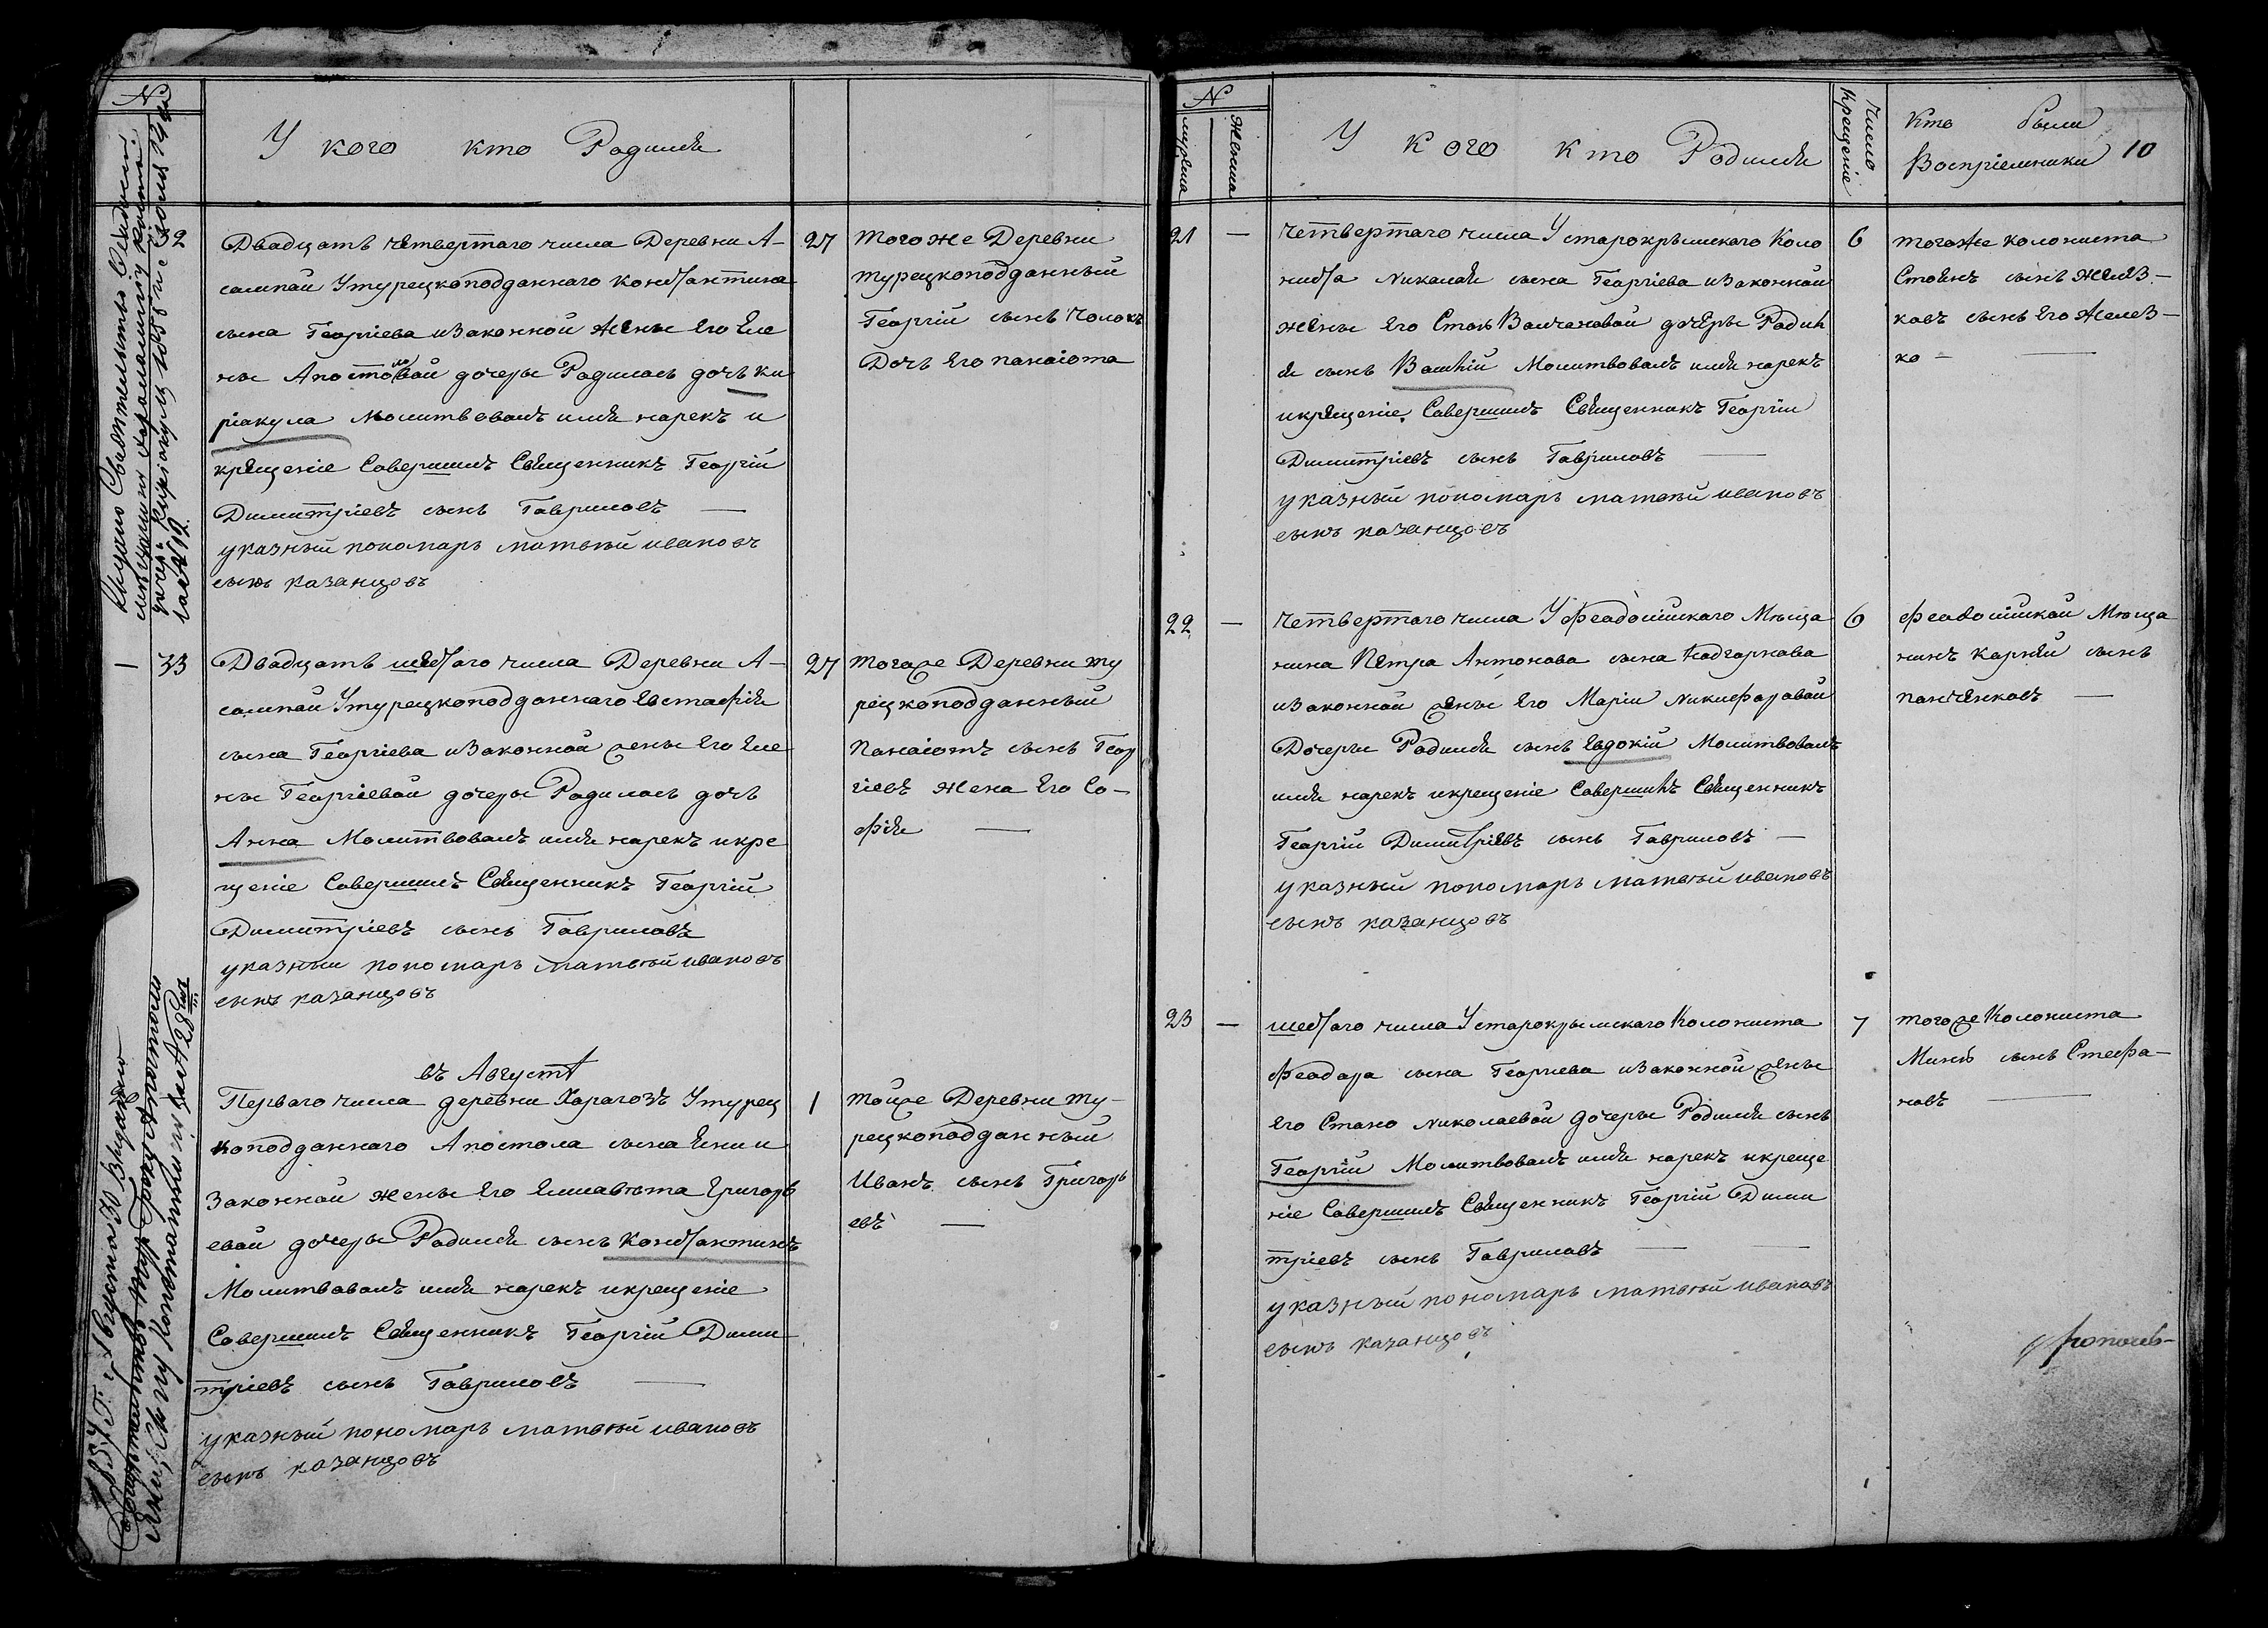 №
У кого кто Родился
32
Двадцать четвертаго числа Деревни А-
сампай У турецкоподданнаго Константина
сына Георгіева и законной жены Его Еле
ны Апостоловой дочеры Родилась дочь Ки
ріакула Молитвовалъ имя нарекъ и
крещеніе Совершилъ Священникъ Георгій
Димитріевъ сынъ Гавриловъ —
указный пономарь матвѣй ивановъ
сынъ казанцовъ
27
того же Деревни
турецкоподданный
Георгій сынъ Чолокъ
Дочь Его панаіота
— 33
Двадцать шестаго числа Деревни А-
сампай У турецкоподданнаго Евстафія
сына Георгіева и законной жены Его Еле
ны Георгіевой дочеры Родилась дочь
Анна Молитвовалъ имя нарекъ и кре
щеніе Совершилъ Священникъ Георгій
Димитріевъ сынъ Гавриловъ
указный пономарь матвѣй ивановъ
сынъ казанцовъ
27
тогоже Деревни ту
рецкоподданный
Панаіотъ сынъ Геор
гіевъ жена Его Со-
фія —
въ Августѣ
Перваго числа деревни Карагозъ У турец
коподданнаго Апостола сына Яни и
законной жены Его Елисавета Григорь
евой дочеры Родился сынъ Константинъ
Молитвовалъ имя нарекъ и крещеніе
Совершилъ Священникъ Георгій Дими
тріевъ сынъ Гавриловъ —
указный пономарь матвѣй ивановъ
сынъ казанцовъ
1
тойже Деревни ту-
рецкоподданный
Иванъ сынъ Григорь
евъ —
№
мужеска
женска
У кого кто Родился
Число крещеніе
Кто были
Воспріемники 10
21 —
четвертаго числа У старокрымскаго Коло
ниста Николая сына Георгіева и законной
жены Его Стою Волчановой дочеры Родил
ся сынъ Василій Молитвовалъ имя нарекъ
и крещеніе Совершилъ Священникъ Георгіи
Димитріевъ сынъ Гавриловъ —
указный пономарь матвѣй ивановъ
сынъ казанцовъ
6
тогоже колониста
Стоянъ сынъ желез-
ковъ сынъ Его желез-
ко — —
22 —
четвертаго числа У Феодосійскаго Мѣща
нина Петра Антонова сына Подгорнова
и законной жены Его Маріи Никифоровой
Дочеры Родился сынъ Евдокій Молитвовалъ
имя нарекъ и крещеніе Совершилъ Священникъ
Георгій Димитріевъ сынъ Гавриловъ —
указный пономарь матвѣй ивановъ
сынъ казанцовъ
6
Феодосійской Мѣща
нинъ Карнѣй сынъ
панченковъ —
23 —
шестаго числа У старокрымскаго Колониста
Феодора сына Георгиева и законной жены
Его Стано Николаевой дочеры Родился сынъ
Георгій Молитвовалъ имя нарекъ и креще
ніе Совершилъ Священникъ Георгій Дими
тріевъ сынъ Гавриловъ — —
указный пономарь матвѣй ивановъ
сынъ казанцовъ
7
тогоже Колониста
Минѣ сынъ Стефа-
новъ —